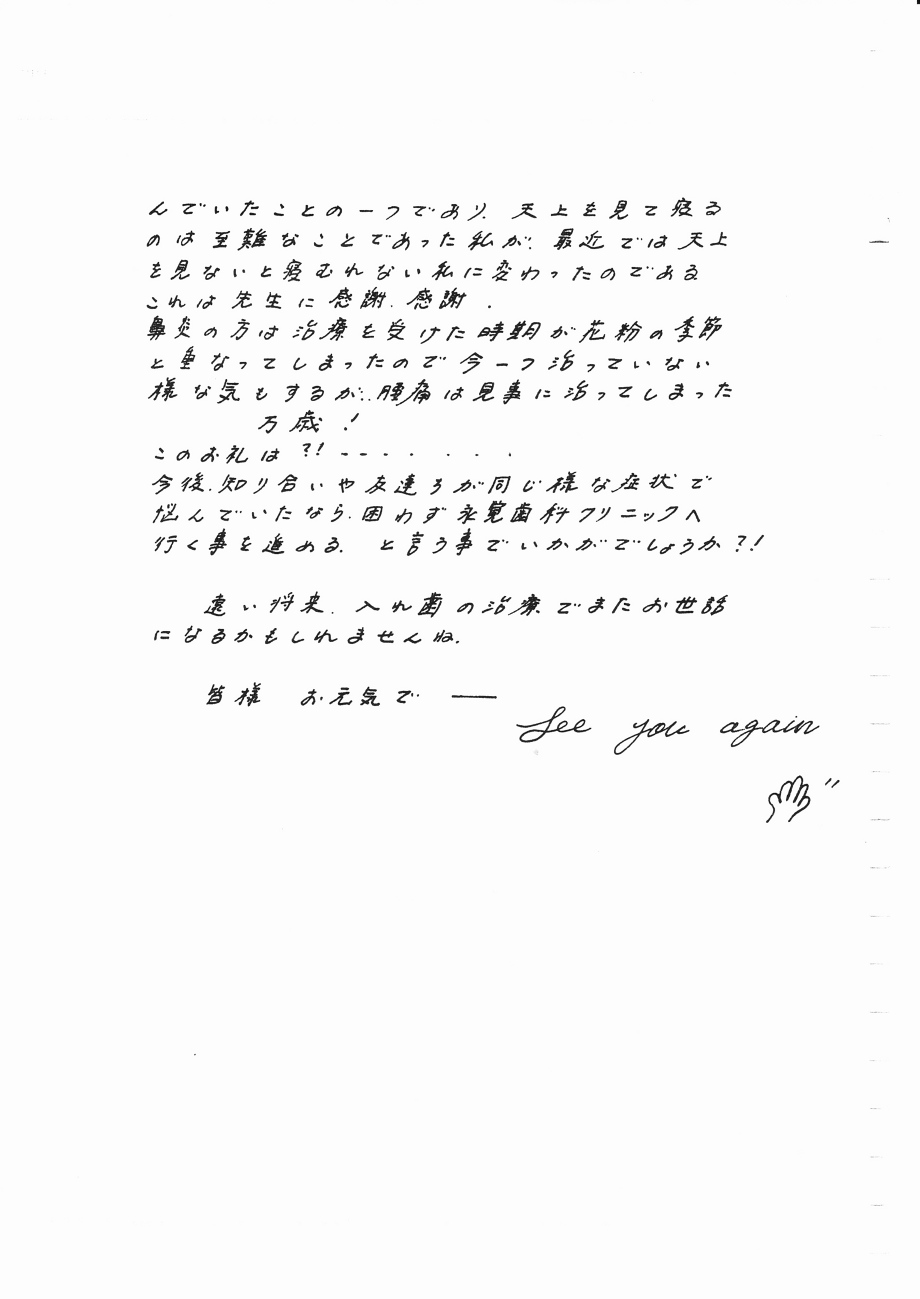 んでいたことの一つであり、天上を見て寝る
のは至難なことであった私が、最近では天上
を見ないと寝むれない私に変わったのである
これは先生に感謝、感謝．
鼻炎の方は治療を受けた時期が花粉の季節
と重なってしまったので今一つ治っていない
様な気もするが、腰痛は見事に治ってしまった
万歳！
このお礼は?!--・・・・・・
今後、知り合いや友達ろが同じ様な症状で
悩んでいたなら、困わず永覚歯科クリニックへ
行く事を進める、と言う事でいかがでしょうか?!
遠い将来、入れ歯の治療でまたお世話
になるかもしれませんね．
皆様 お元気で ──
See you again